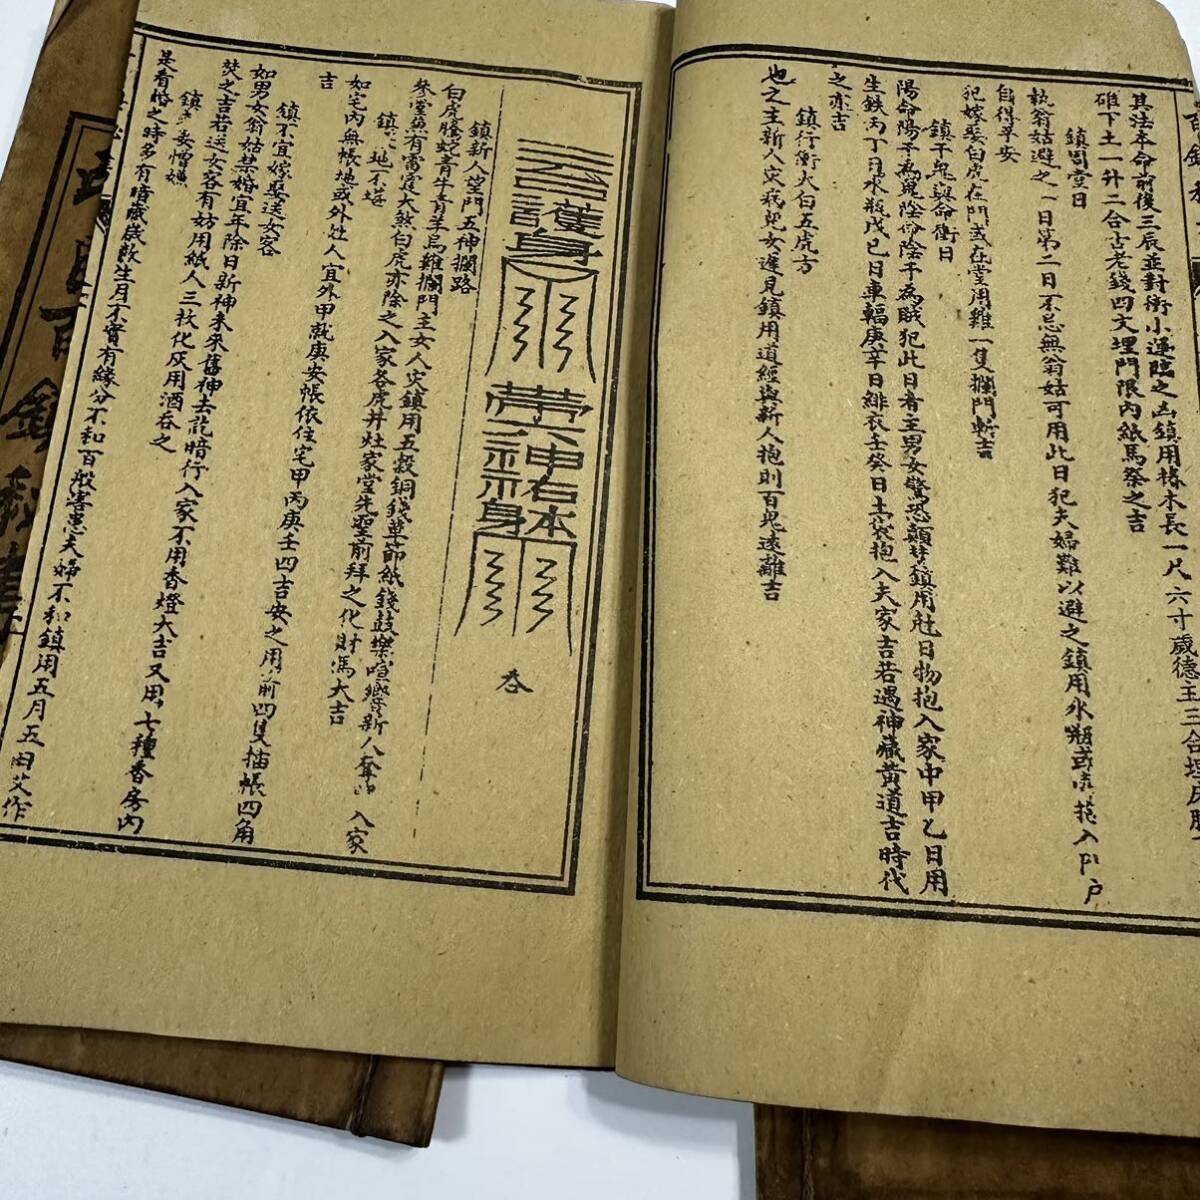 其法本命前後三辰並對衝小運臨之凶鎮用椿木長一尺六寸歲德主三合埋
碓下土一升二合古老錢四文埋門限內紙馬祭之吉
鎮周堂日
執翁姑避之一日第二日不忌無翁姑可用此日犯夫婦難以避之鎮用水瓶或 抱入門戶
自得平安
犯嫁娶白虎在門或在堂用雞一隻攔門斬吉
鎮干鬼與命衝日
陽命陽干為鬼陰命陰干為賊犯此日者主男女驚恐顛 鎮用尅日物抱入家中甲乙日用
生鉄丙丁日水瓶戊己日車輻庚辛日緋衣壬癸日土袋抱入夫家吉若遇神藏黃道吉時代
之亦吉
鎮行衝太白五虎方
也之主新人灾病兒女遲見鎮用道經與新人抱則百鬼遠離吉
三台護身
帶六神祐本
神身
吞
鎮新人望門五神攔路
白虎螣蛇青牛青羊烏雞攔門主女人灾鎮用五穀銅錢草節紙錢鼓樂喧響新人 入家
參堂無有當堂大煞白虎亦除之入家各虎井灶家堂先聖前拜之化財馮大吉
鎮 地不堪
如宅內無帳地或外姓人宜外甲就庚安帳依住宅甲丙庚壬四吉安之用前四隻插帳四角
吉
鎮不宜嫁娶送女客
如男女翁姑禁婚宜年除日新神未來舊神去訖暗行入家不用香燈大吉又用七種香房內
焚之吉若送女客有妨用紙人三枚化灰用酒吞之
鎮 妾憎嫌
是看婚之時多有暗歲歲數生月不實有緣分不和百般害患夫婦不和鎮用五月五日艾作